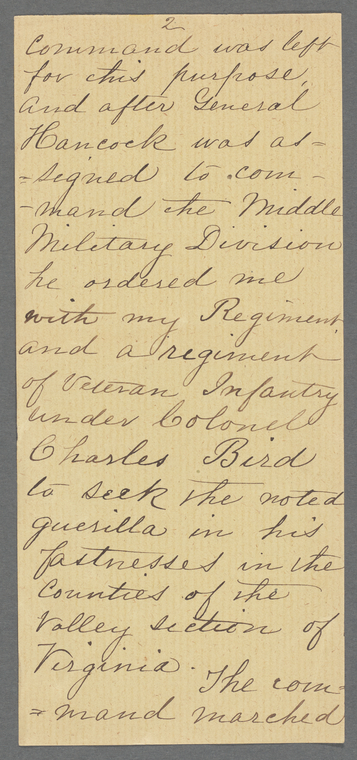 2
command was left
for this purpose,
and after General
Hancock was as=
=signed to com-
-mand the Middle
Military Division
he ordered me
with my Regiment,
and a regiment
of Veteran Infantry
under Colonel
Charles Bird
to seek the noted
guerilla in his
fastnesses in the
Counties of the
Valley section of
Virginia. The com=
=mand marched